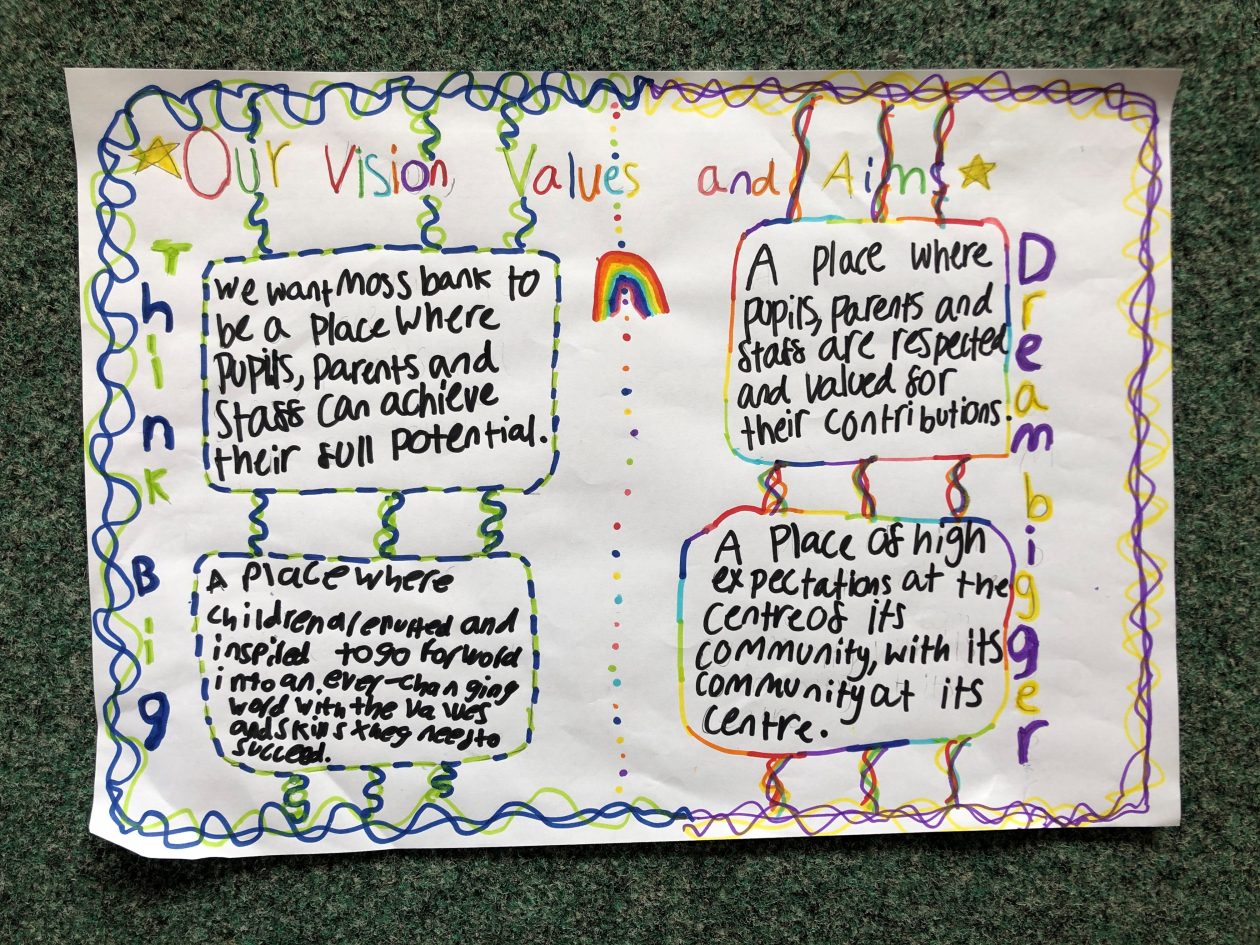 Our Vision Values and Aims
Think Big
We want Moss bank to
be a place where
pupils, parents and
staff can achieve
their full potential.
A place where
children are nutted and
inspired to go forword
into an ever-changing
word with the values
and skills they need to
succeed.
A place where
pupils, parents and
staff are respected
and valued for
their contributions.
A place of high
expectations at the
centre of its
community, with its
community at its
centre.
Dream bigger